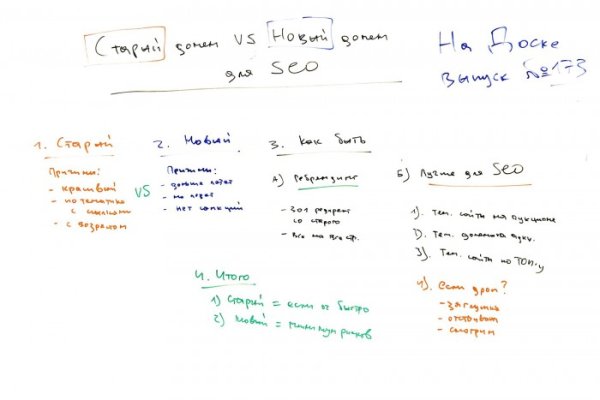 Старый домен VS Новый домен
для SEO
На Доске
выпуск №173
1. Старый
Причины:
- красивый
- по тематике
с ссылками
- с возрастом
VS
2. Новый
Причины:
- дольше
- нет санкций
3. Как быть
А) Ребрендинг
- 301 редирект
со старого
- Все на все стр.
Б) Лучше для SEO
1). Тем. сайты на аукционе
2). Тем. домена аукц.
3). Тем. сайты по ТОП-у
4). если дроп?
- заглушка
- отстаивам
- смотрим
4. Итого
1) Старый = если оч быстро
2) Новый = минимум рисков